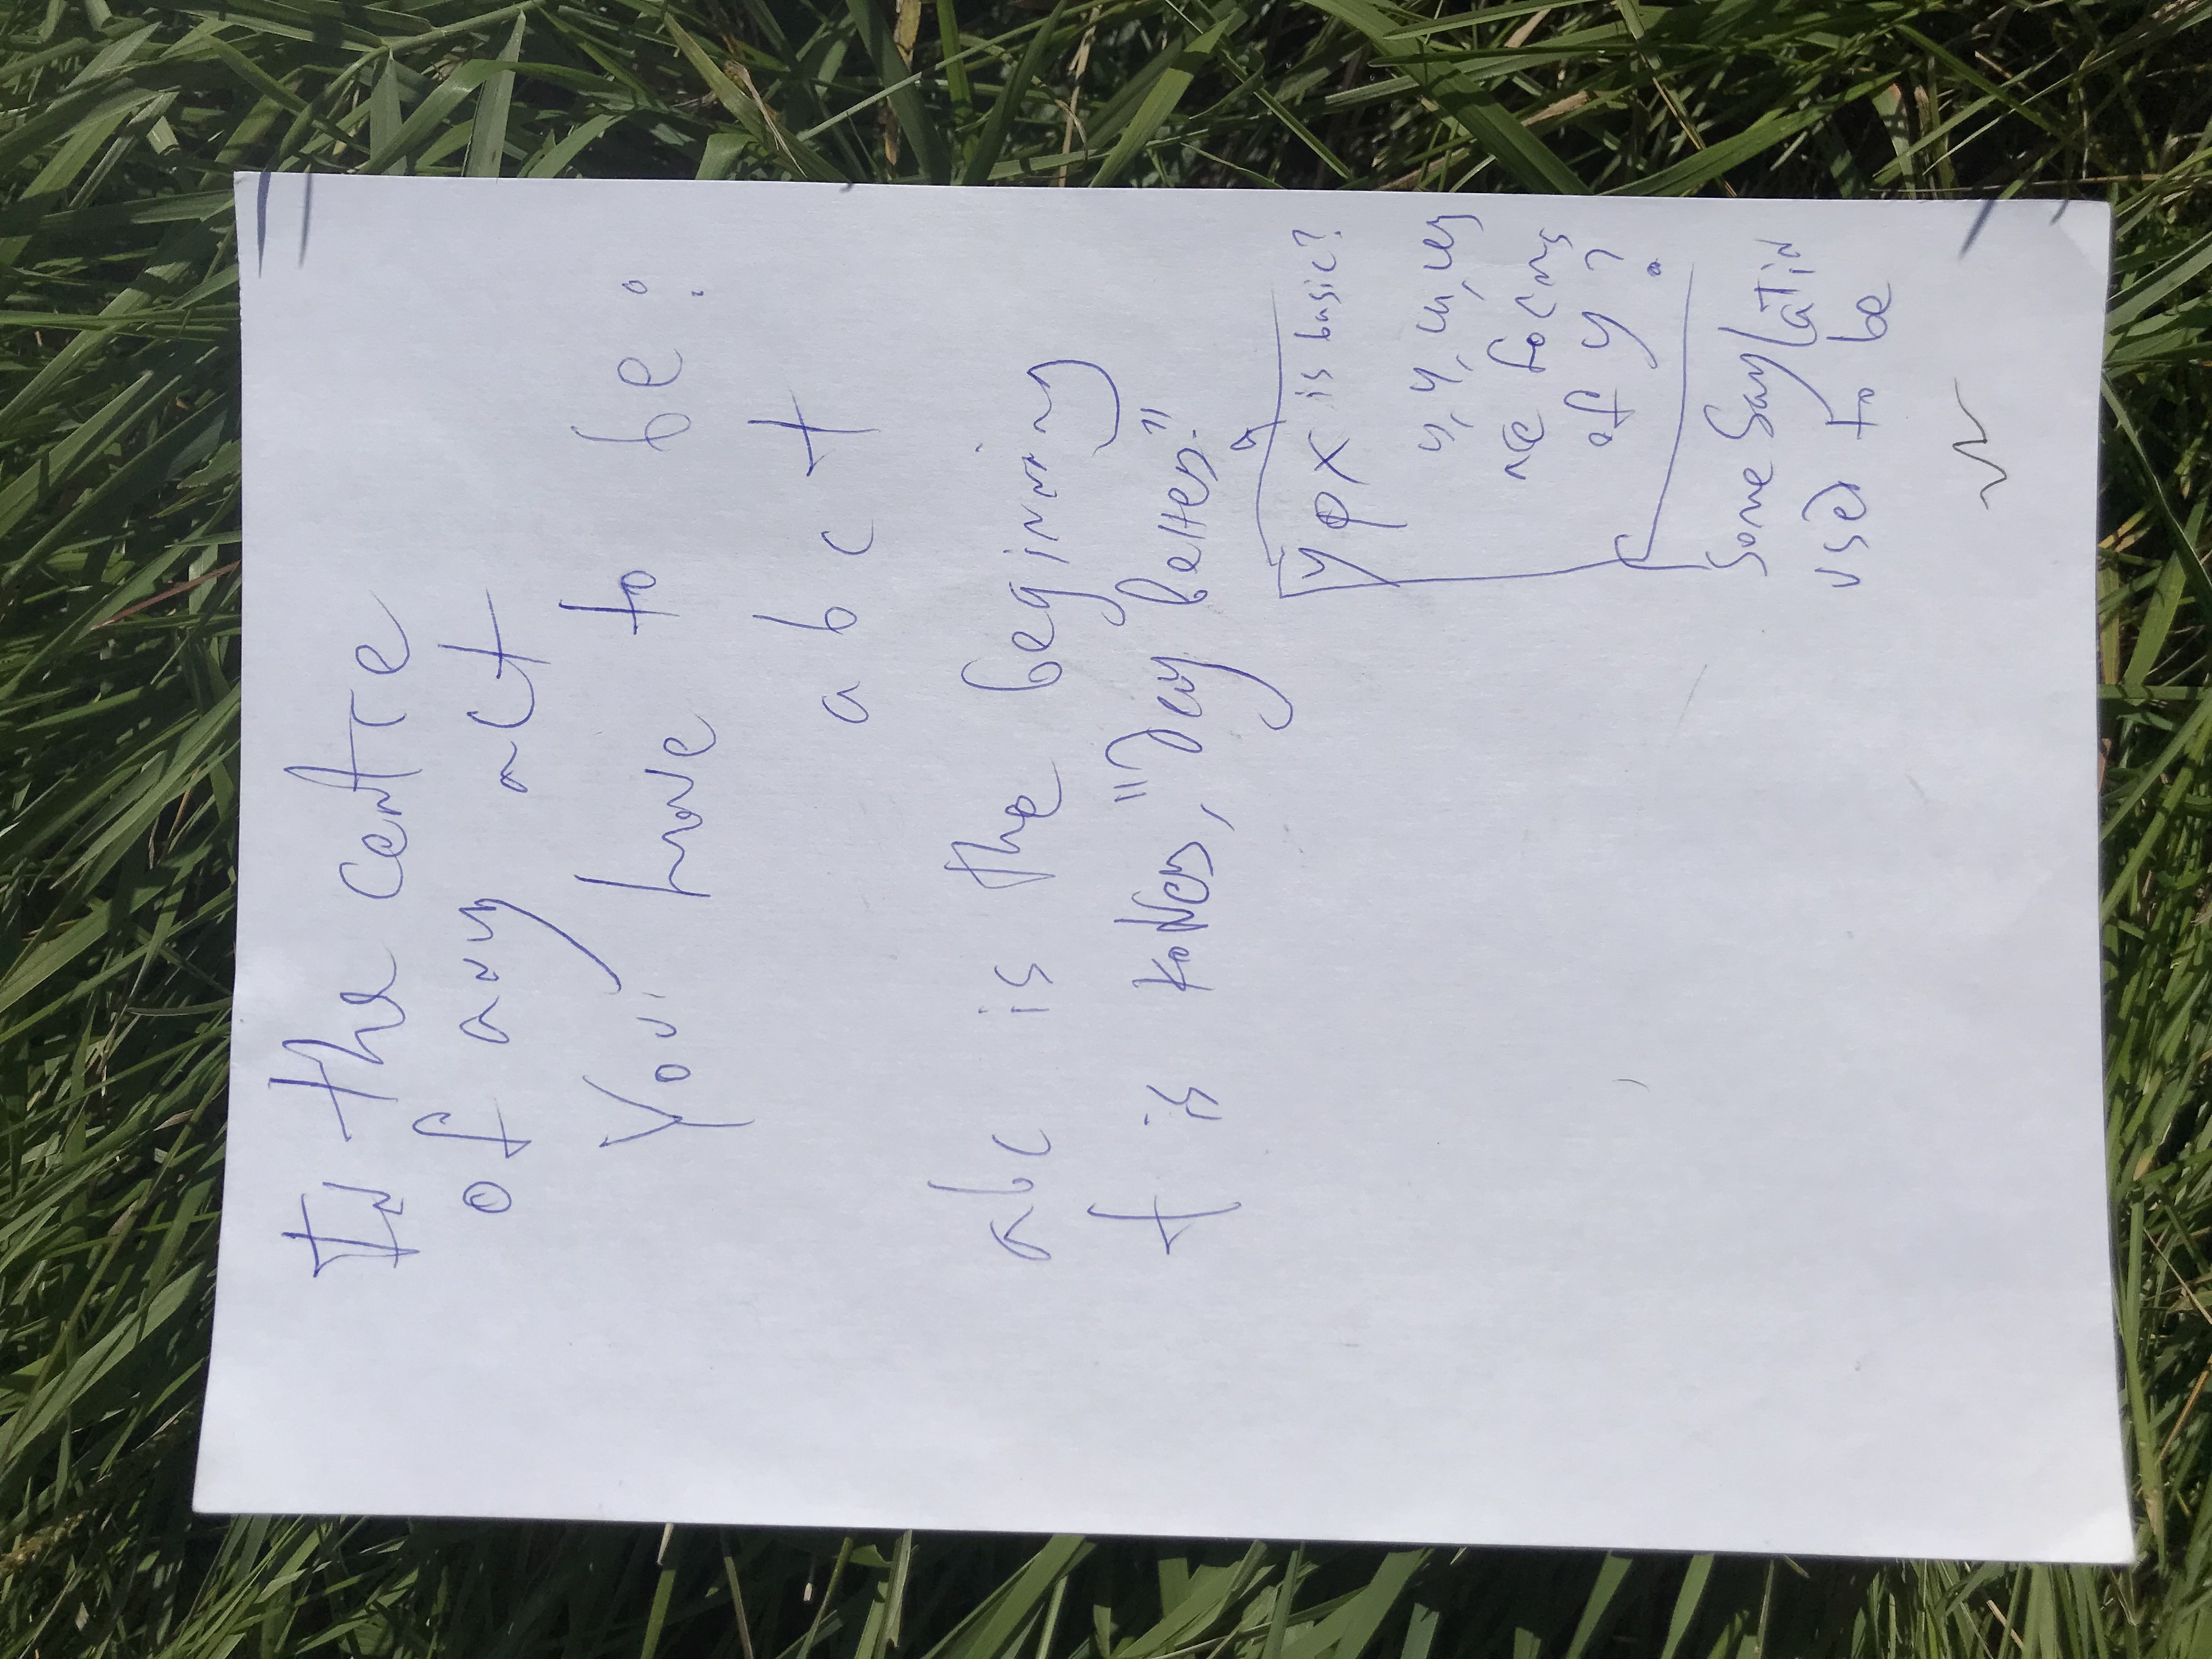 In the centre
of any act
You have to be:
a b c t
abc is the beginning
t is конец, "Деу
у ф х is basic?
ц, ч, ш, щ
are forms
of y?
Some say Latin
used to be